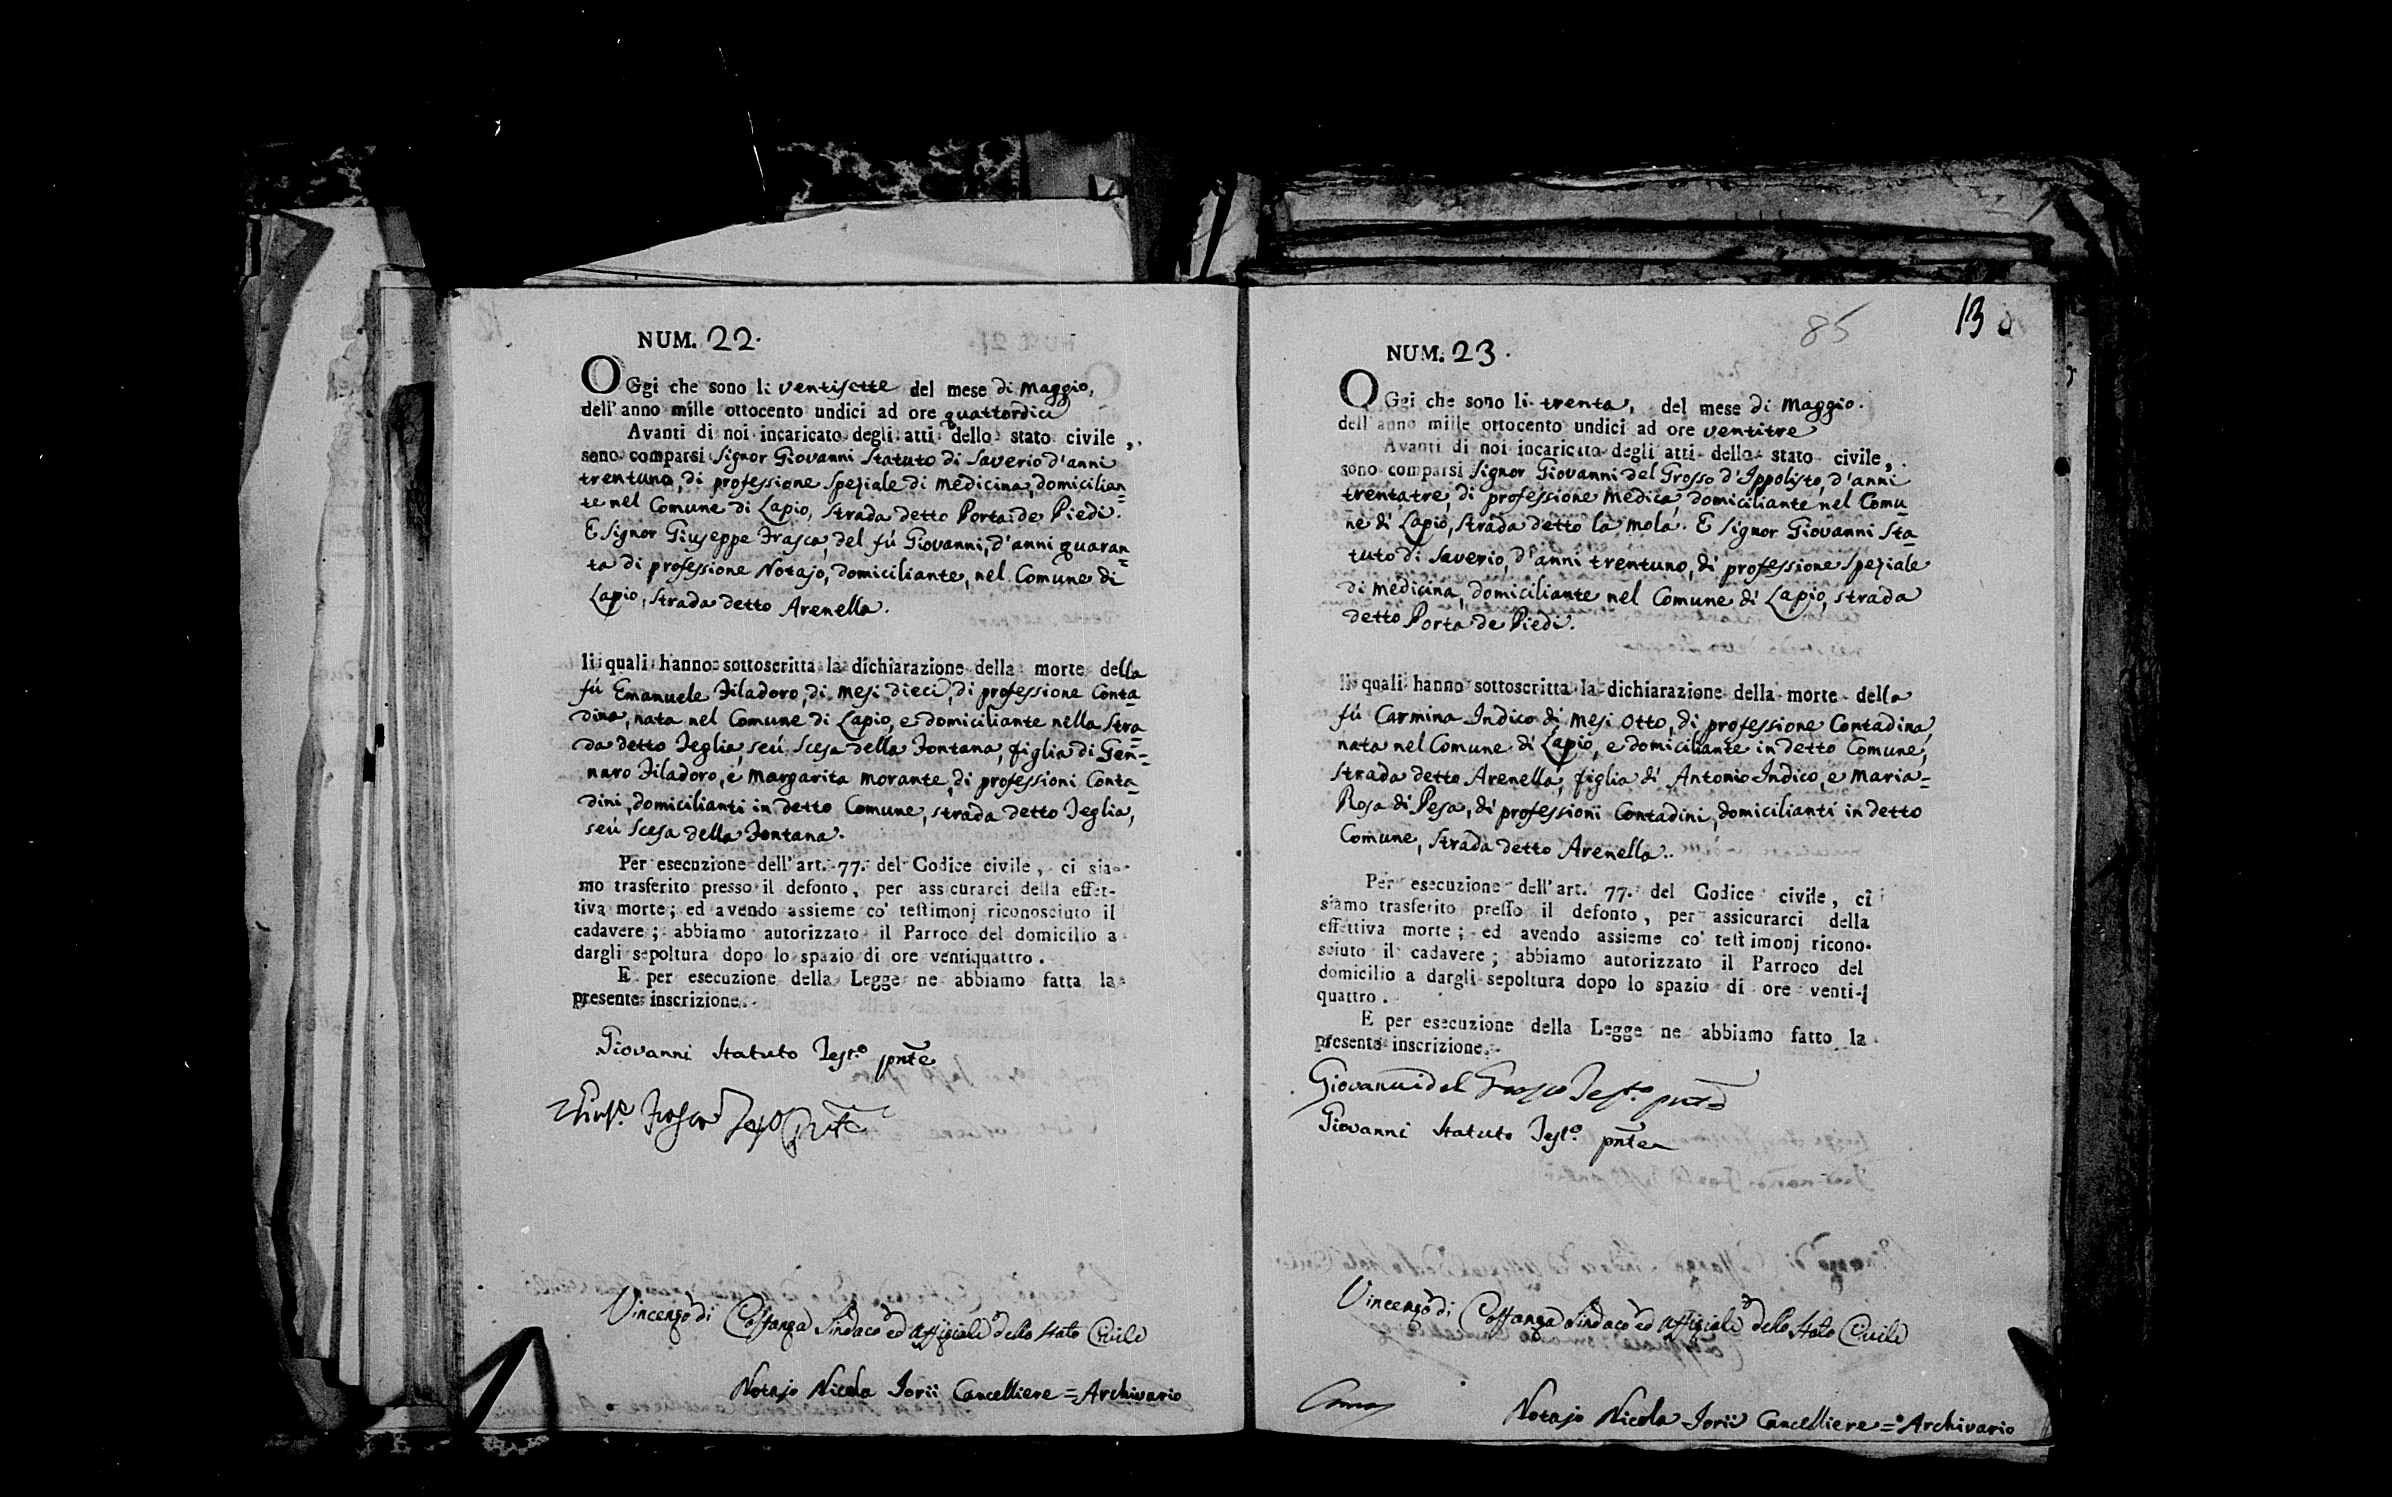 NUM. 22.
OGgi che sono li ventisette del mese di Maggio,
dell'anno mille ottocento undici ad ore quattordici
Avanti di noi incaricato degli atti dello stato civile,
sono comparsi Signor Giovanni Statuto di Saverio d'anni
trentuno, di professione Speziale di Medicina, domicilian=
te nel Comune di Lapio, strada detto Porta de Piedi.
E Signor Giuseppe Frasca, del fú Giovanni, d'anni quaran=
ta di professione Notajo, domiciliante, nel Comune di
Lapio, strada detto Arenella.
li quali hanno sottoscritta la dichiarazione della morte della
fú Emanuele Filadoro, di mesi dieci, di professione Conta=
dina, nata nel Comune di Lapio, e domiciliante nella Stra=
da detto Teglia, seú Scesa della Fontana, figlia di Gen=
naro Filadoro, e Margarita Morante, di professioni Conta=
dini, domicilianti in detto Comune, strada detto Teglia,
seú Scesa della Fontana.
Per esecuzione dell'art. 77. del Codice civile, ci sia-
mo trasferito presso il defonto, per assicurarci della effet-
tiva morte; ed avendo assieme co' testimonj riconosciuto il
cadavere; abbiamo autorizzato il Parroco del domicilio a
dargli sepoltura dopo lo spazio di ore ventiquattro.
E per esecuzione della Legge ne abbiamo fatta la
presente inscrizione.
Giovanni Statuto Test.o pnte
Frasca Test.o pnte
Vincenzo di Costanza Sindaco ed Uffiziale dello Stato Civile
Notajo Nicola Jorii Cancelliere = Archivario
85
13
NUM. 23.
OGgi che sono li trenta, del mese di Maggio.
dell'anno mille ottocento undici ad ore ventitre
Avanti di noi incaricato degli atti dello stato civile,
sono comparsi Signor Giovanni del Grosso d'Ippolisto, d'anni
trentatre, di professione Medica, domiciliante nel Comu=
ne di Lapio, strada detto la Mola. E Signor Giovanni Sta=
tuto di Saverio, d'anni trentuno, di professione Speziale
di Medicina, domiciliante nel Comune di Lapio, strada
detto Porta de Piedi.
li quali hanno sottoscritta la dichiarazione della morte della
fú Carmina Indico di mesi otto, di professione Contadina,
nata nel Comune di Lapio, e domiciliante in detto Comune,
strada detto Arenella, figlia di Antonio Indico, e Maria=
Rosa di Pesa, di professioni Contadini, domicilianti in detto
Comune, strada detto Arenella.
Per esecuzione dell'art. 77. del Codice civile, ci
siamo trasferito presso il defonto, per assicurarci della
effettiva morte; ed avendo assieme co' testimonj ricono-
sciuto il cadavere; abbiamo autorizzato il Parroco del
domicilio a dargli sepoltura dopo lo spazio di ore venti-
quattro.
E per esecuzione della Legge ne abbiamo fatto la
presente inscrizione.
Giovanni del Grosso Test.o pnte
Giovanni Statuto Test.o pnte
Vincenzo di Costanza Sindaco ed Uffiziale dello Stato Civile
Notajo Nicola Jorii Cancelliere = Archivario